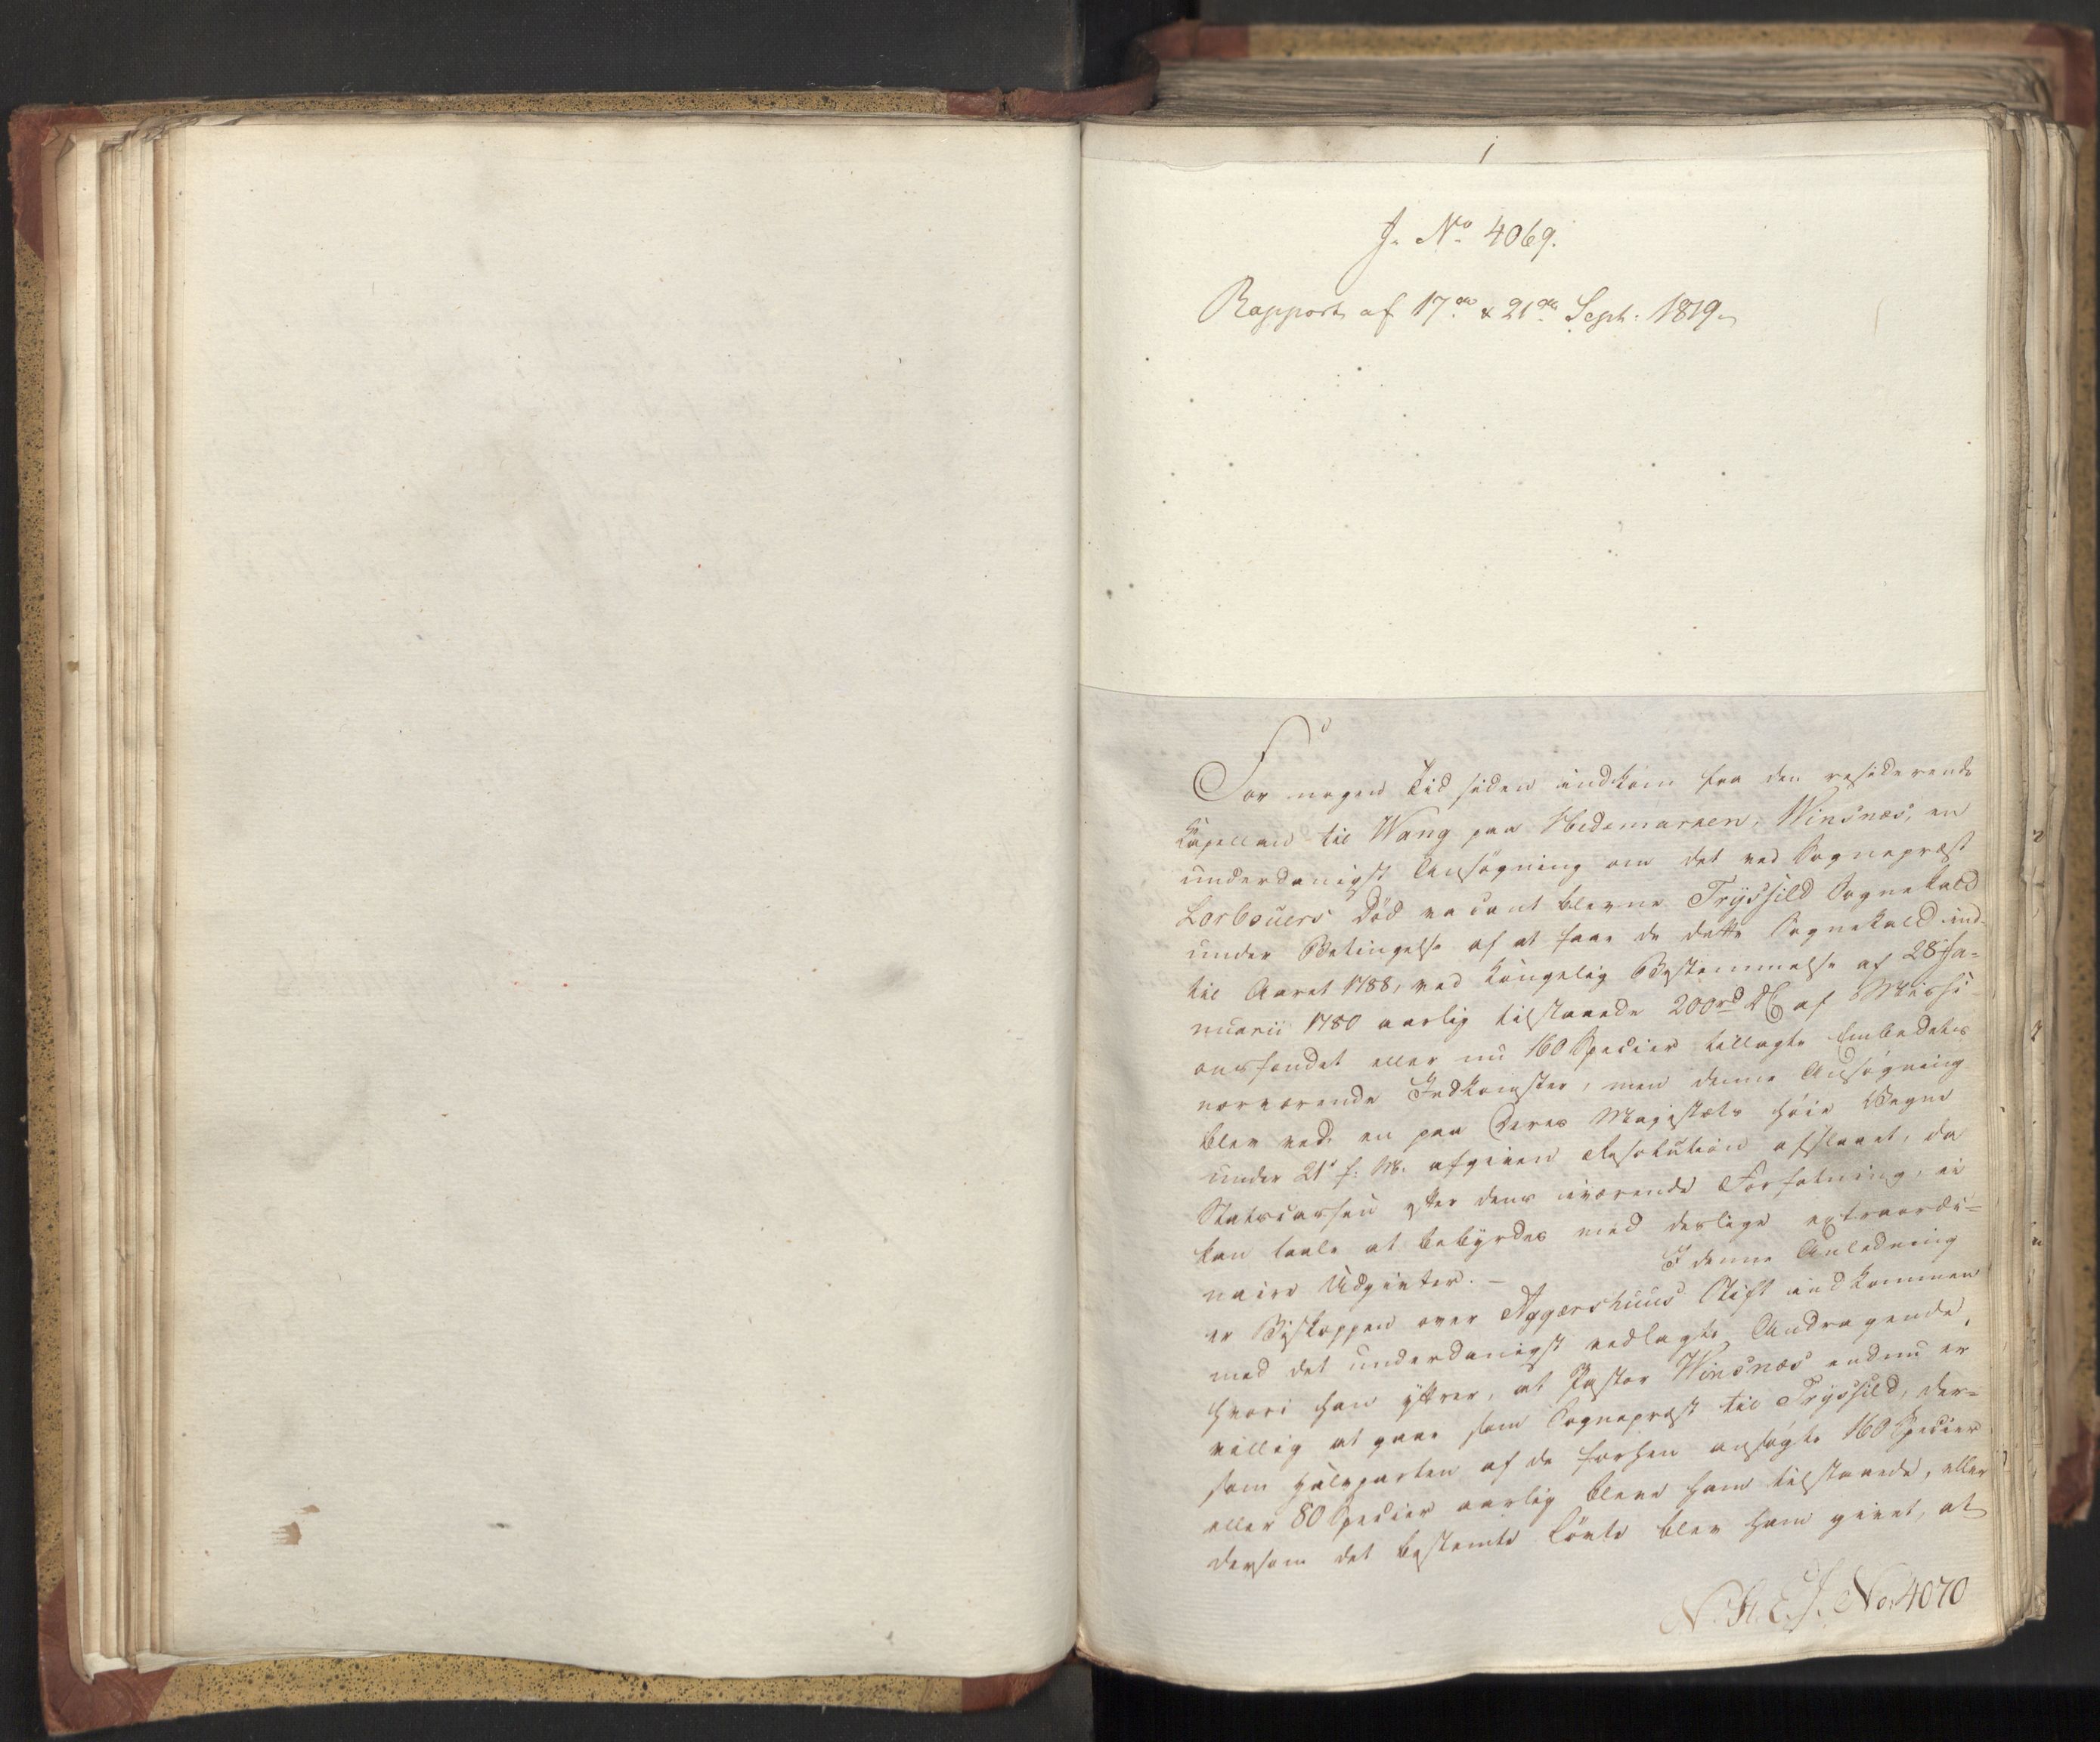 1
J. No 4069.
Rapport af 17de & 21de Sept: 1819.
For nogen Tid siden indkom fra den residerende
Capellan til Wang paa Hedemarken, Winsnæs, en
underdanigst Ansøgning om det ved Sognepræst
Lorbouers Død vacant blevne Tryssild Sognekald
under Betingelse af at faae de dette Sognekald ind-
til Aaret 1788, ved Kongelig Bestemmelse af 28 Ja-
nuarii 1780 aarlig tilstaaede 200rd DC af Missi-
onsfondet eller nu 160 Species tillagte Embedets
nærværende Indkomster, men denne Ansøgning
blev ved en paa Deres Majestæts høie Vegne
under 21 f: M. afgiven Resolution afslaaet, da
Statscassen efter dens nuværende Forfatning, ei
kan taale at bebyrdes med deslige extraordi-
naire Udgifter. – I denne Anledning
er Biskoppen over Aggershuus Stift indkommen
med det underdanigst vedlagte Andragende,
hvori han yttrer, at Pastor Winsnæs endnu er
villig at gaae som Sognepræst til Tryssild, der-
som Halvparten af de forhen ansøgte 160 Species
eller 80 Species aarlig bleve ham tilstaaede, eller
dersom det bestemte Løvte blev ham givet, at
N. St. E. J. No. 4070